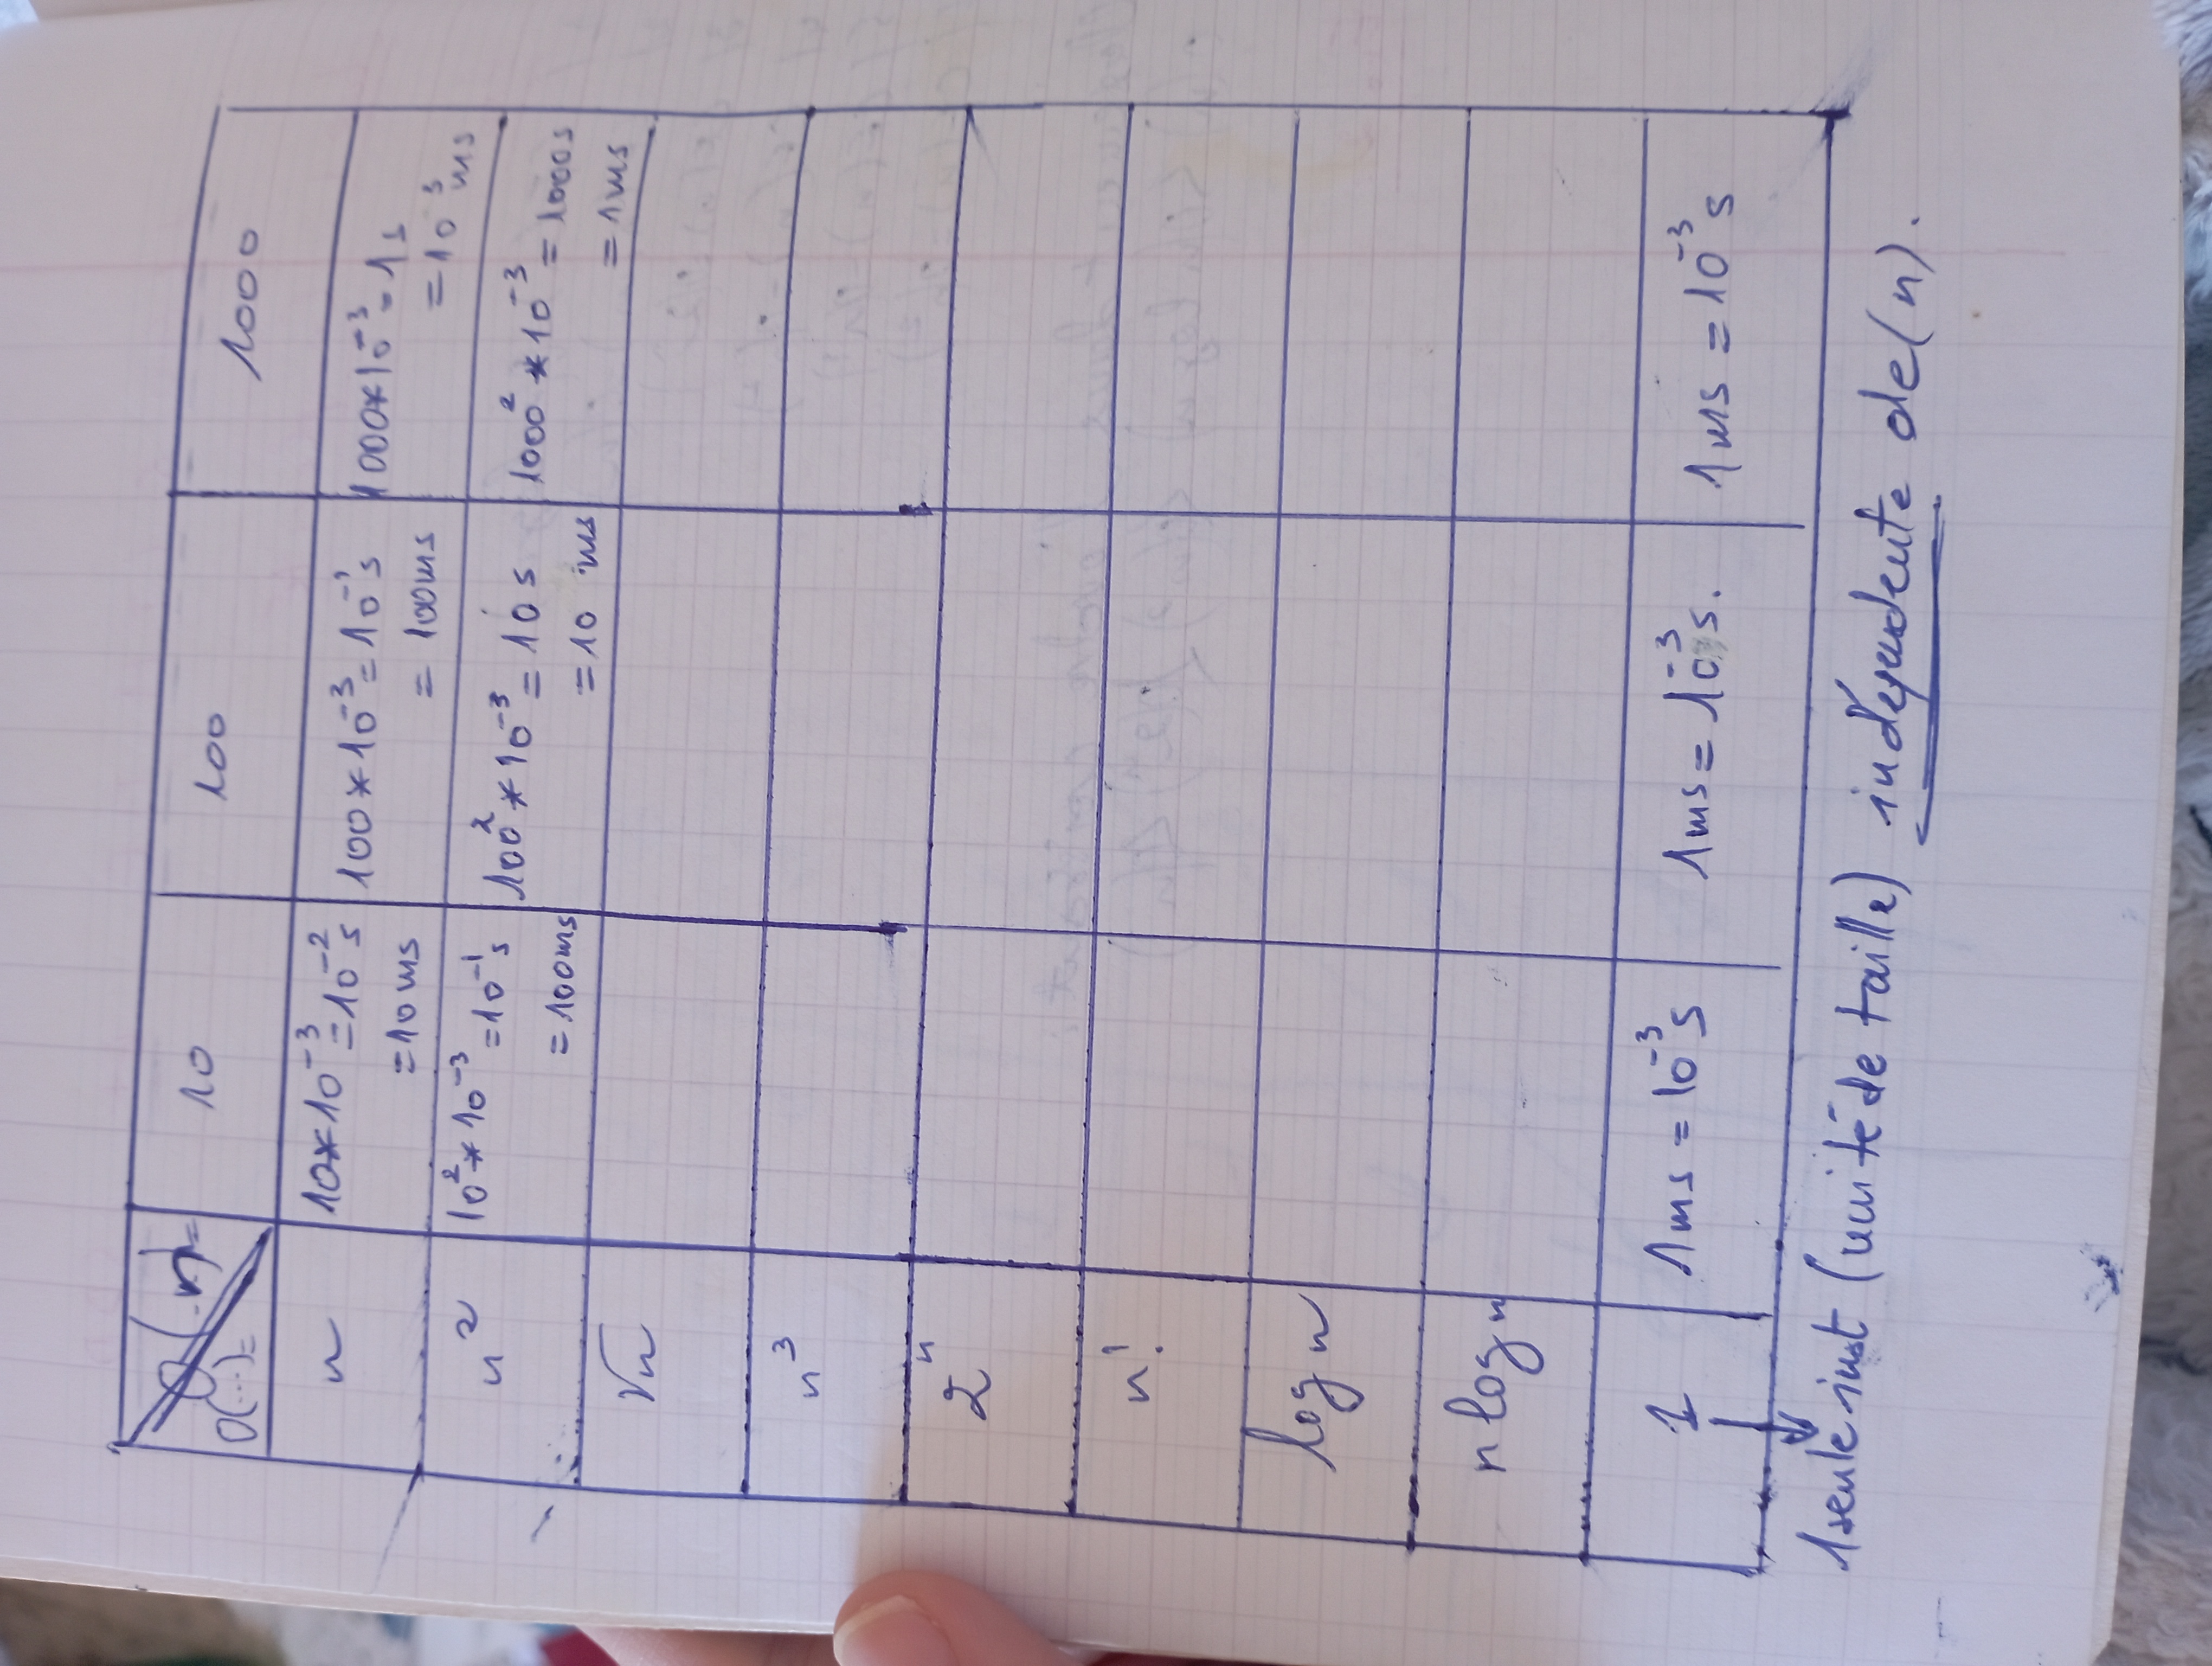 O(n)= 10 100 1000
O(...)=
n 10*10⁻³=10⁻²s 100*10⁻³=10⁻¹s 1000*10⁻³=1s
=10ms = 100ms =10³ms
n² 10²*10⁻³=10⁻¹s 100²*10⁻³=10s 1000²*10⁻³=1000s
=100ms =10 ms =1ms
√n
n³
2ⁿ
n!
log n
n log n
1 1ms=10⁻³s 1ms=10⁻³s. 1ms=10⁻³s
1seule inst (unité de taille) indépendente de(n).